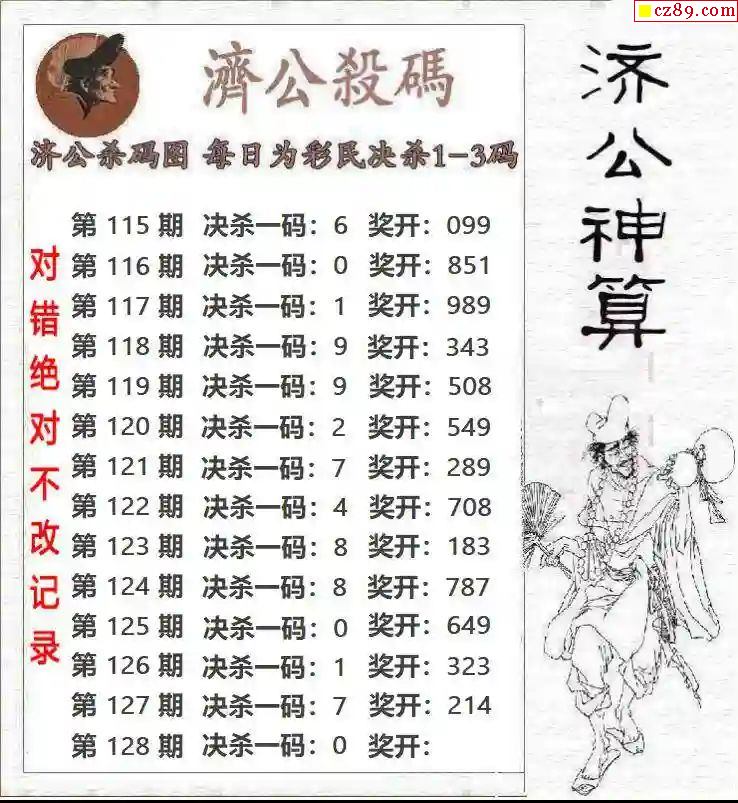 cz89.com
濟公殺碼
济公杀码图 每日为彩民决杀1-3码
第 115 期 决杀一码：6 奖开：099
第 116 期 决杀一码：0 奖开：851
第 117 期 决杀一码：1 奖开：989
第 118 期 决杀一码：9 奖开：343
第 119 期 决杀一码：9 奖开：508
第 120 期 决杀一码：2 奖开：549
第 121 期 决杀一码：7 奖开：289
第 122 期 决杀一码：4 奖开：708
第 123 期 决杀一码：8 奖开：183
第 124 期 决杀一码：8 奖开：787
第 125 期 决杀一码：0 奖开：649
第 126 期 决杀一码：1 奖开：323
第 127 期 决杀一码：7 奖开：214
第 128 期 决杀一码：0 奖开：
对错绝对不改记录
济公神算